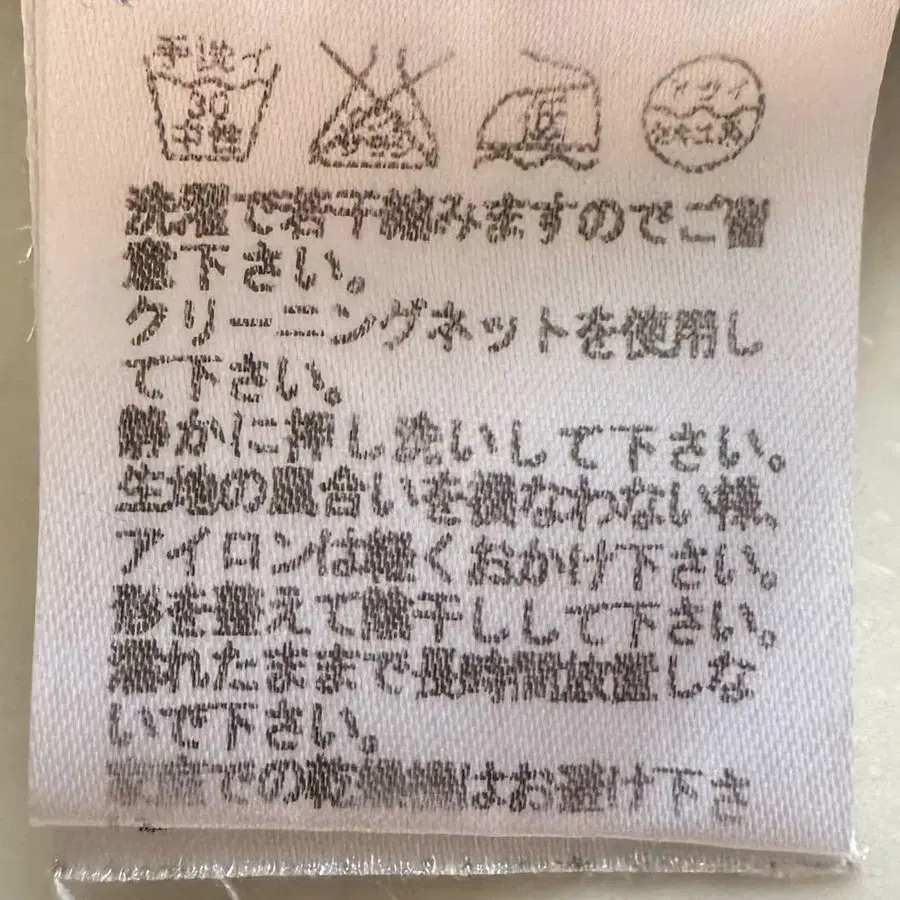 手洗イ
30
中性
低
ドライ
セキユ系
洗濯で若干縮みますのでご留
意下さい。
クリーニングネットを使用し
て下さい。
静かに押し洗いして下さい。
生地の風合いを損なわない様、
アイロンは軽くおかけ下さい。
形を整えて陰干しして下さい。
濡れたままで長時間放置しな
いで下さい。
家庭での乾燥機はお避け下さ